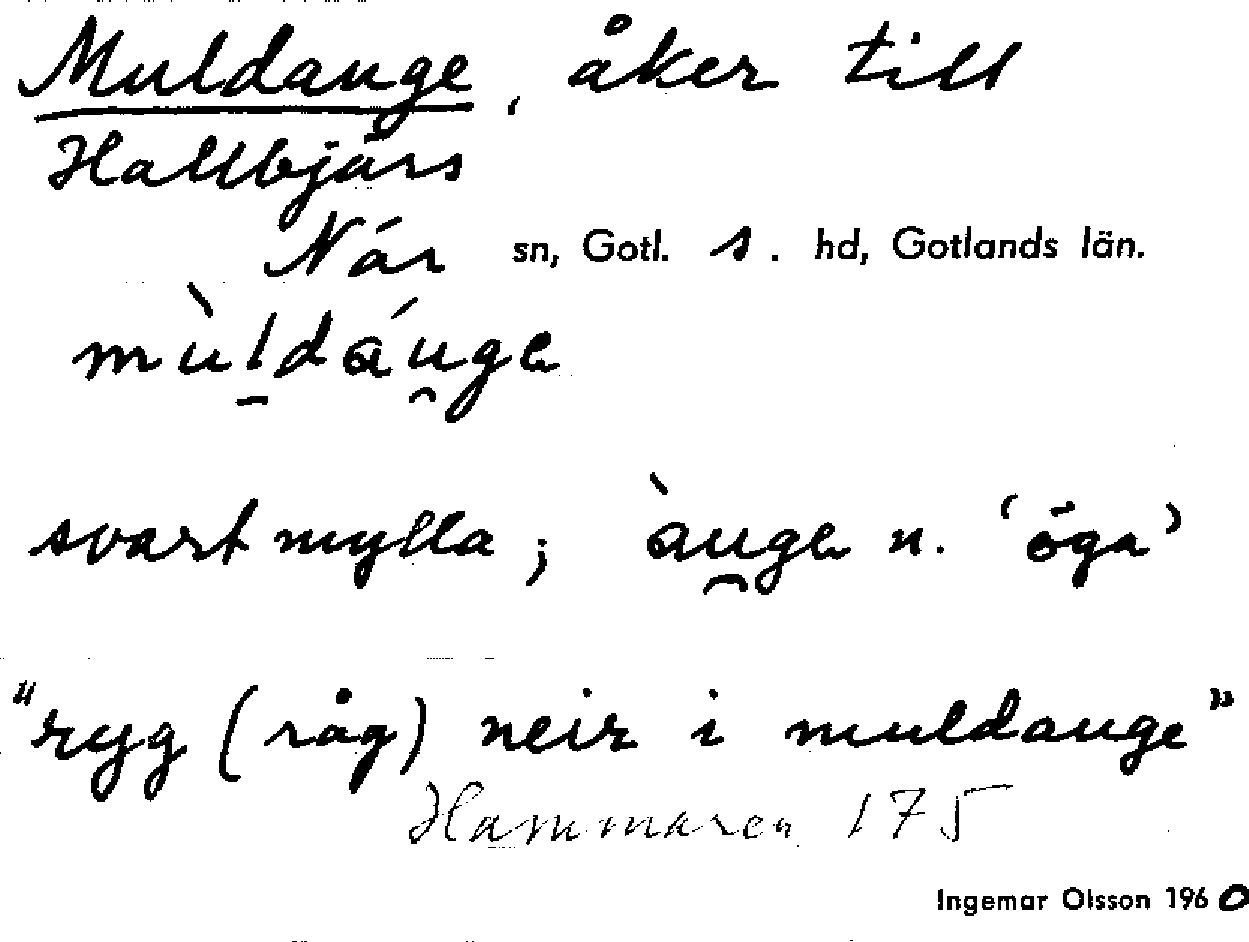 Muldauge, åker till
Hallbjärs
När sn, Gotl. s. hd, Gotlands län.
mùl̠dáu̯ge
svartmylla; àu̯ge n. ‘öga’
"ryg (råg) neir i muldauge"
Hammaren 175
Ingemar Olsson 1960